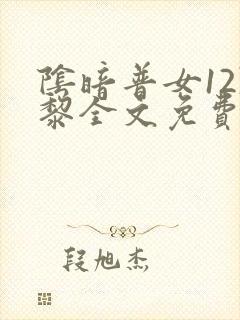 陰暗普女12
黎全文免費
段旭杰